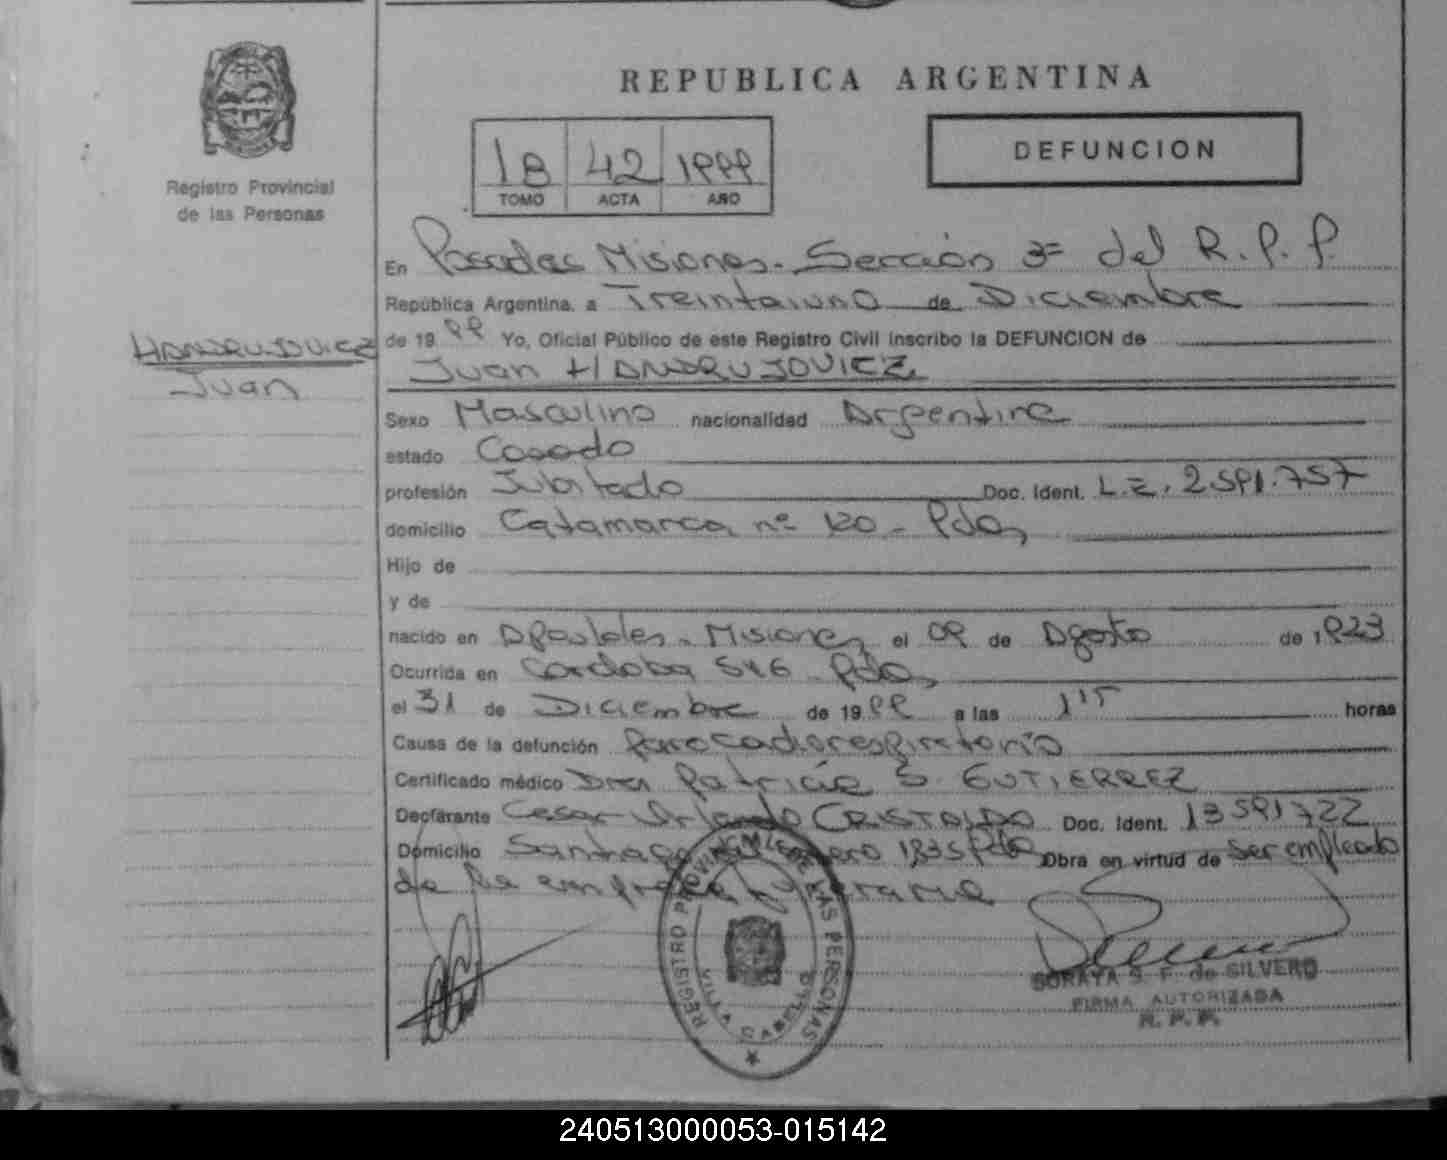 REPUBLICA ARGENTINA
DEFUNCION
1B 42 1999
TOMO ACTA AÑO
Registro Provincial
de las Personas
En Posadas Misiones. Sección 3ª del R. P. P.
República Argentina, a Treintaiuno de Diciembre
HANDRUJOVICZ
Juan
de 1999 Yo, Oficial Público de este Registro Civil inscribo la DEFUNCION de
Juan HANDRUJOVICZ
Sexo Masculino nacionalidad Argentina
estado Casado
profesión Jubilado Doc. Ident. L.E. 2.591.757
domicilio Catamarca nº 120 - Pdas
Hijo de
y de
nacido en Apostoles - Misiones el 09 de Agosto de 1923
Ocurrida en Cordoba 546 Pdas
el 31 de Diciembre de 1999 a las 1 15 horas
Causa de la defunción Parocardiorespiratorio
Certificado médico Dra Patricia S. GUTIERREZ
Declarante Cesar Orlando CRISTALDO Doc. Ident. 13591722
Domicilio Santiago del Estero 1835 Pdas Obra en virtud de ser empleado
de la empresa funeraria
REGISTRO PROVINCIAL DE LAS PERSONAS
VILLA CABELLO
SORAYA S. F. de SILVERO
FIRMA AUTORIZADA
R. P. P.
240513000053-015142